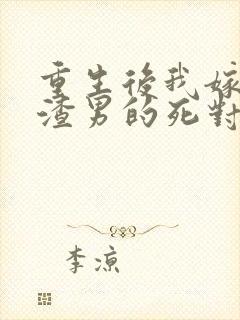 重生後我嫁
渣男的死對
李涼